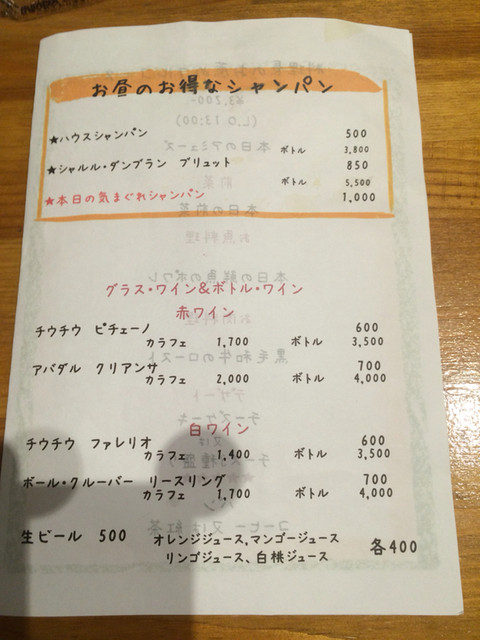 お昼のお得なシャンパン
★ハウスシャンパン 500
ボトル 3,800
★シャルル・ダンブラン ブリュット 850
ボトル 5,500
★本日の気まぐれシャンパン 1,000
グラス・ワイン&ボトル・ワイン
赤ワイン
チウチウ ピチェーノ 600
カラフェ 1,700 ボトル 3,500
アバダル クリアンサ 700
カラフェ 2,000 ボトル 4,000
白ワイン
チウチウ ファレリオ 600
カラフェ 1,400 ボトル 3,500
ポール・クルーバー リースリング 700
カラフェ 1,700 ボトル 4,000
生ビール 500 オレンジジュース、マンゴージュース 各400
リンゴジュース、白桃ジュース